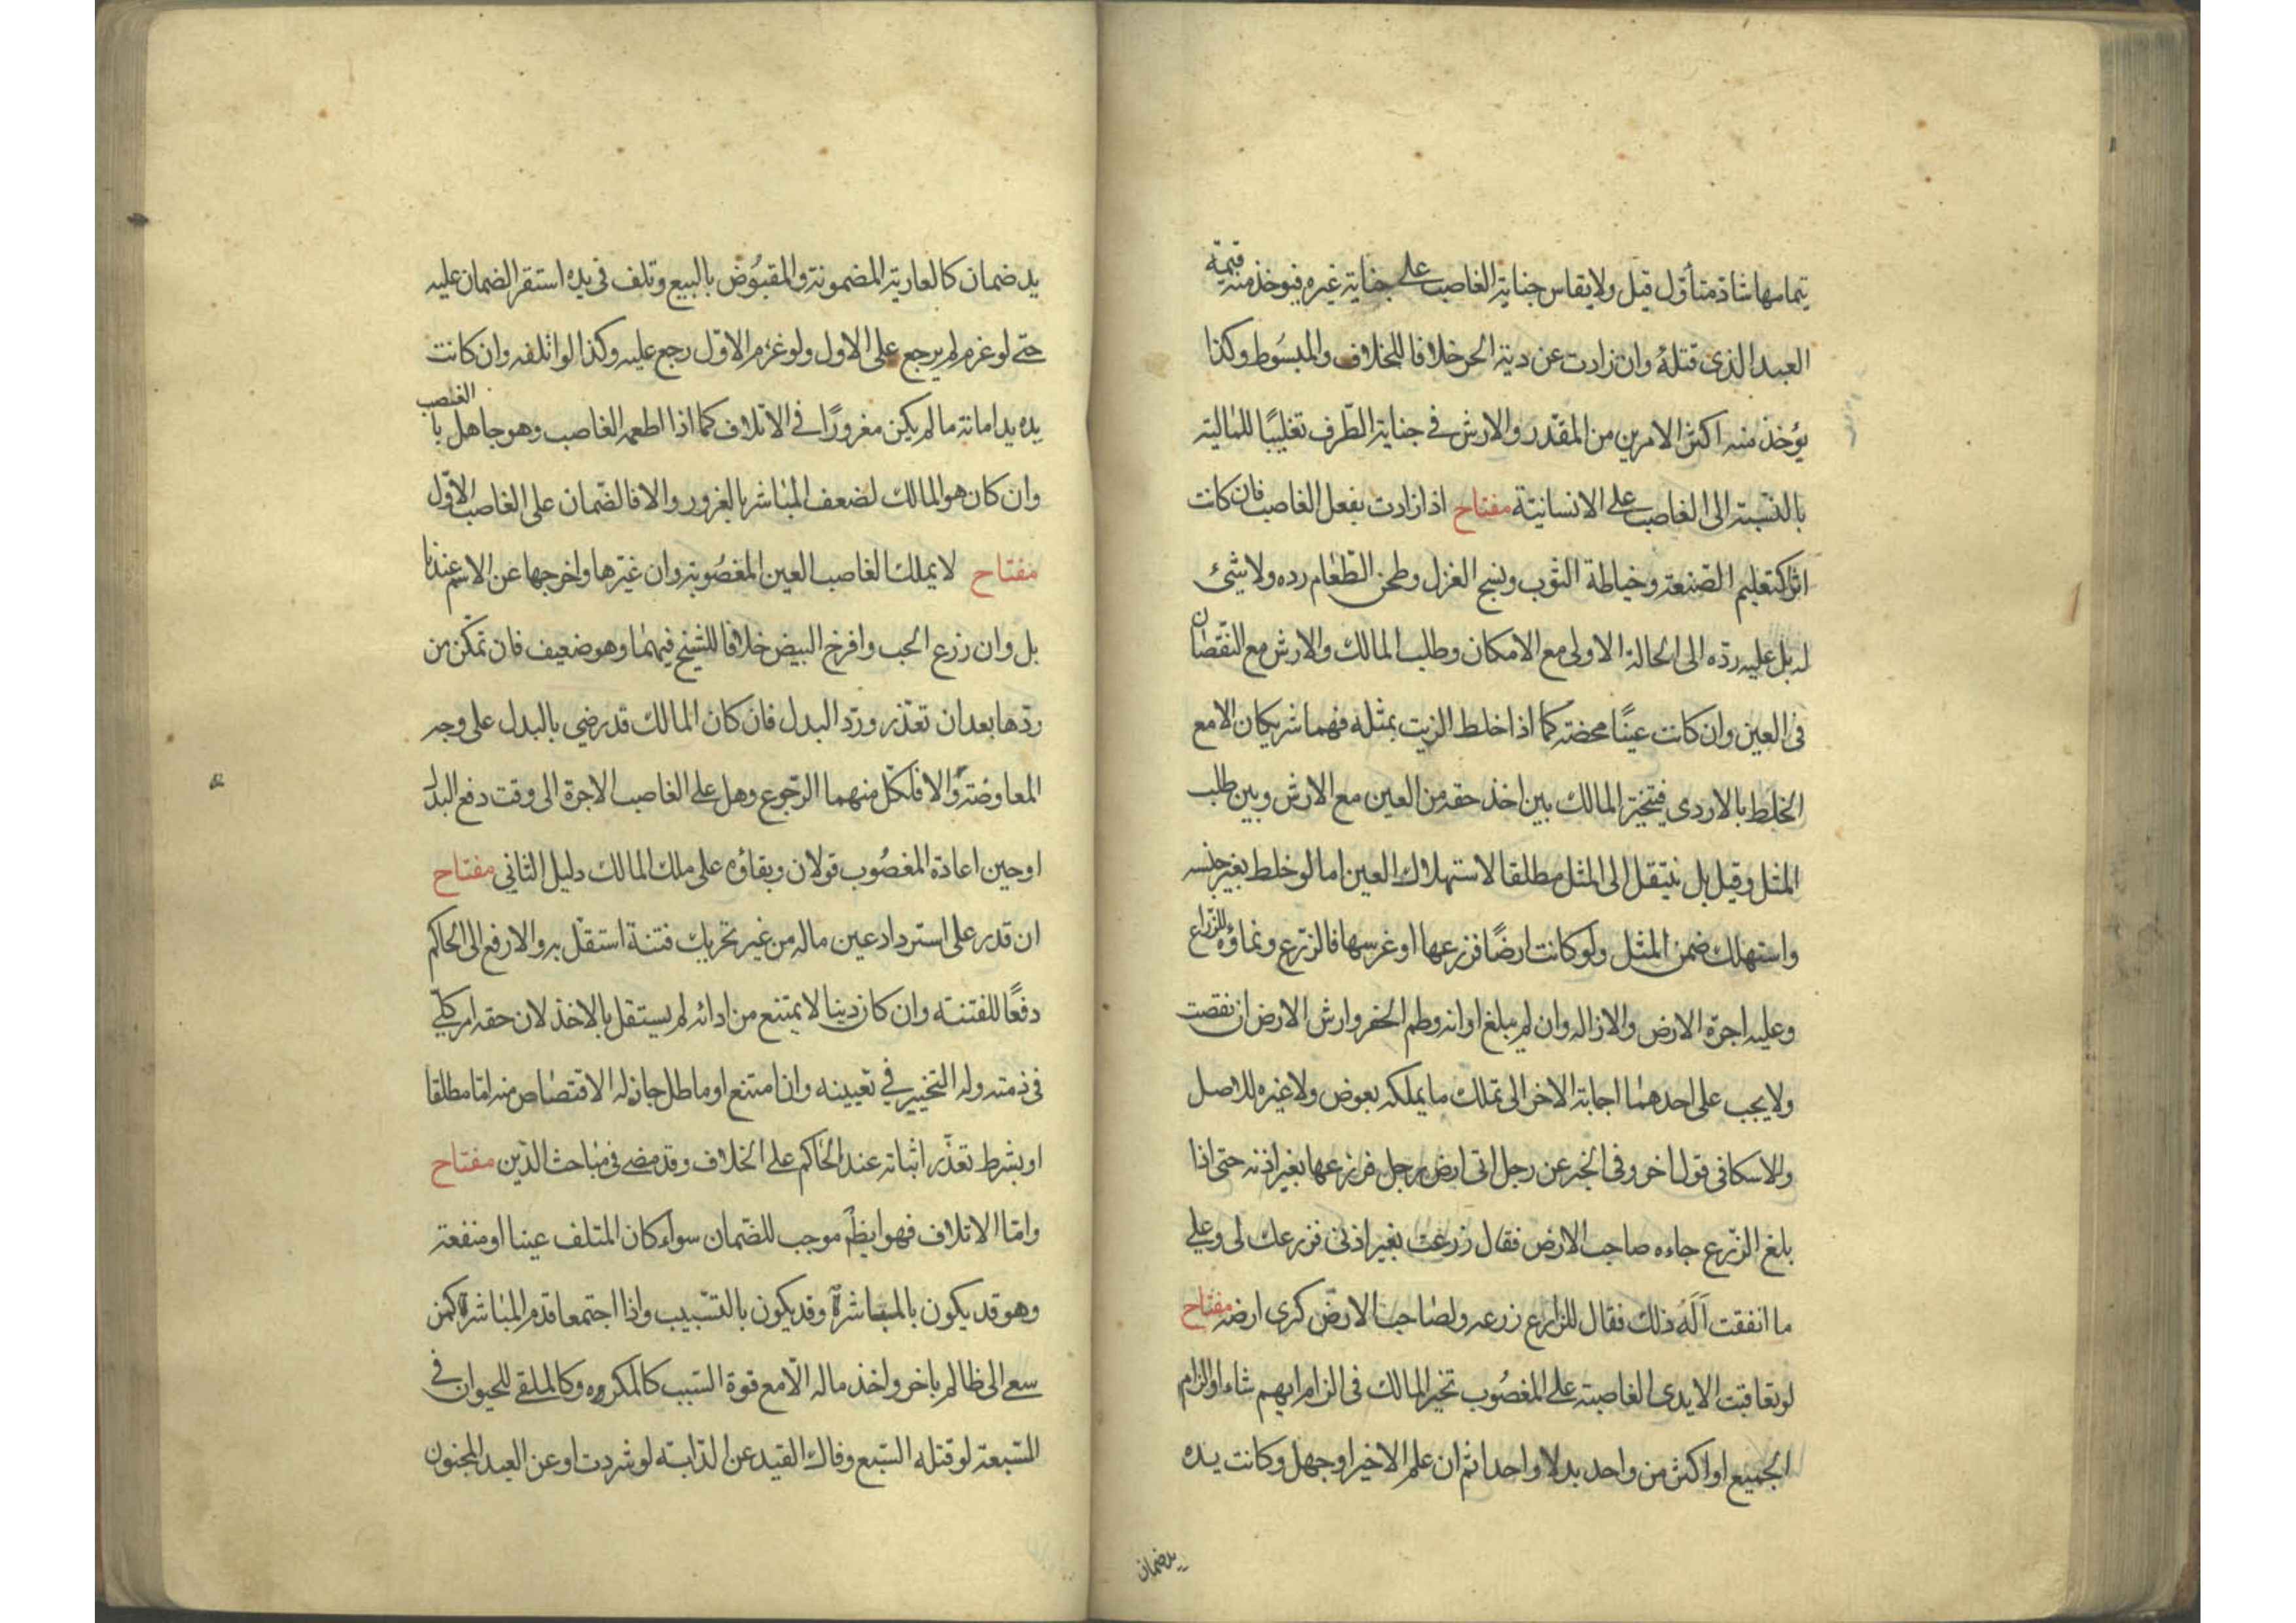 بتمامها شاذ متأول قيل ولا يقاس جناية الغاصب على جناية غيره فيوخذ منه قيمة
العبد الذى قتله وان زادت عن دية الحر خلافا للخلاف والمبسُوط وكذا
يؤخذ منه اكثر الامرين من المقدّر والارش فى جناية الطّرف تغليبًا للمالية
بالنّسبة الى الغاصب على الانسانيّة مفتاح اذا زادت بفعل الغاصب فان كانت
اثرا كتعليم الصّنعة وخياطة الثوب ونسج الغزل وطحن الطّعام رده ولا شئ
له بل عليه ردّه الى الحالة الاولى مع الامكان وطلب المالك والارش مع النّقصان
فى العين وان كانت عينًا محضة كما اذا خلط الزيت بمثله فهما شريكان الا مع
الخلط بالاردى فيتخير المالك بين اخذ حقه من العين مع الارش وبين طلب
المثل وقيل بل ينتقل الى المثل مطلقا لاستهلاك العين اما لو خلط بغير جنسه
واستهلك ضمن المثل ولو كانت ارضًا فزرعها او غرسها فالزرع ونماؤه للزّراع
وعليه اجرة الارض والازاله وان لم يبلغ اوانه وطم الحفر وارش الارض ان نقصت
ولا يجب على احدهما اجابة الاخر الى تملك ما يملكه بعوض ولا غيره للاصل
وللاسكافى قول اخر وفى الخبر عن رجل اتى ارض رجل فزرعها بغير اذنه حتى اذا
بلغ الزّرع جاءه صاحب الارض فقال زرعت بغير اذنى فزرعك لى وعلى
ما انفقت اَلَهُ ذلك فقال للزارع زرعه ولصاحب الارض كرى ارضه مفتاح
لو تعاقبت الايدى الغاصبة على المغصُوب تخير المالك فى الزام ايهم شاء او الزام
الجميع او اكثر من واحد بدلا واحدا ثم ان علم الاخير او جهل وكانت يده
يد ضمان
يد ضمان كالعارية المضمونة والمقبُوض بالبيع وتلف فى يده استقر الضمان عليه
حتّى لو غرم لم يرجع على الاول ولو غرم الاوّل رجع عليه وكذا لو اتلفه وان كانت
يده يد امانة ما لم يكن مغرورًا فى الاتلاف كما اذا اطعمه الغاصب وهو جاهل بالغصب
وان كان هو المالك لضعف المباشر بالغرور والا فالضّمان على الغاصب الاوّل
مفتاح لا يملك الغاصب العين المغصُوبة وان غيّرها واخرجها عن الاسم عندنا
بل وان زرع الحب وافرخ البيض خلافا للشيخ فيهما وهو ضعيف فان تمكّن من
ردّها بعد ان تعذّر وردّ البدل فان كان المالك قد رضى بالبدل على وجه
المعاوضة والا فلكل منهما الرّجوع وهل على الغاصب الاجرة الى وقت دفع البدل
او حين اعادة المغصُوب قولان وبقاؤه على ملك المالك دليل الثانى مفتاح
ان قدر على استرداد عين ماله من غير تحريك فتنة استقلّ به والا رفع الى الحاكم
دفعًا للفتنة وان كان دينا لا يمتنع من ادائه لم يستقل بالاخذ لان حقه امر كلّى
فى ذمته وله التخيير فى تعيينه وان امتنع او ماطل جاز له الاقتصاص منه امّا مطلقا
او بشرط تعذّر اثباته عند الحاكم على الخلاف وقد مضى فى مباحث الدّين مفتاح
وامّا الاتلاف فهو ايضاً موجب للضّمان سواء كان المتلف عينا او منفعة
وهو قد يكون بالمباشرة وقد يكون بالتّسبيب واذا اجتمعا قدم المباشرة كمن
سعى الى ظالم باخر واخذ ماله الّا مع قوة السّبب كالمكروه وكالملقى للحيوان فى
المسّبعة لو قتله السّبع وفاك القيد عن الدّابة لو شردت او عن العبد المجنون